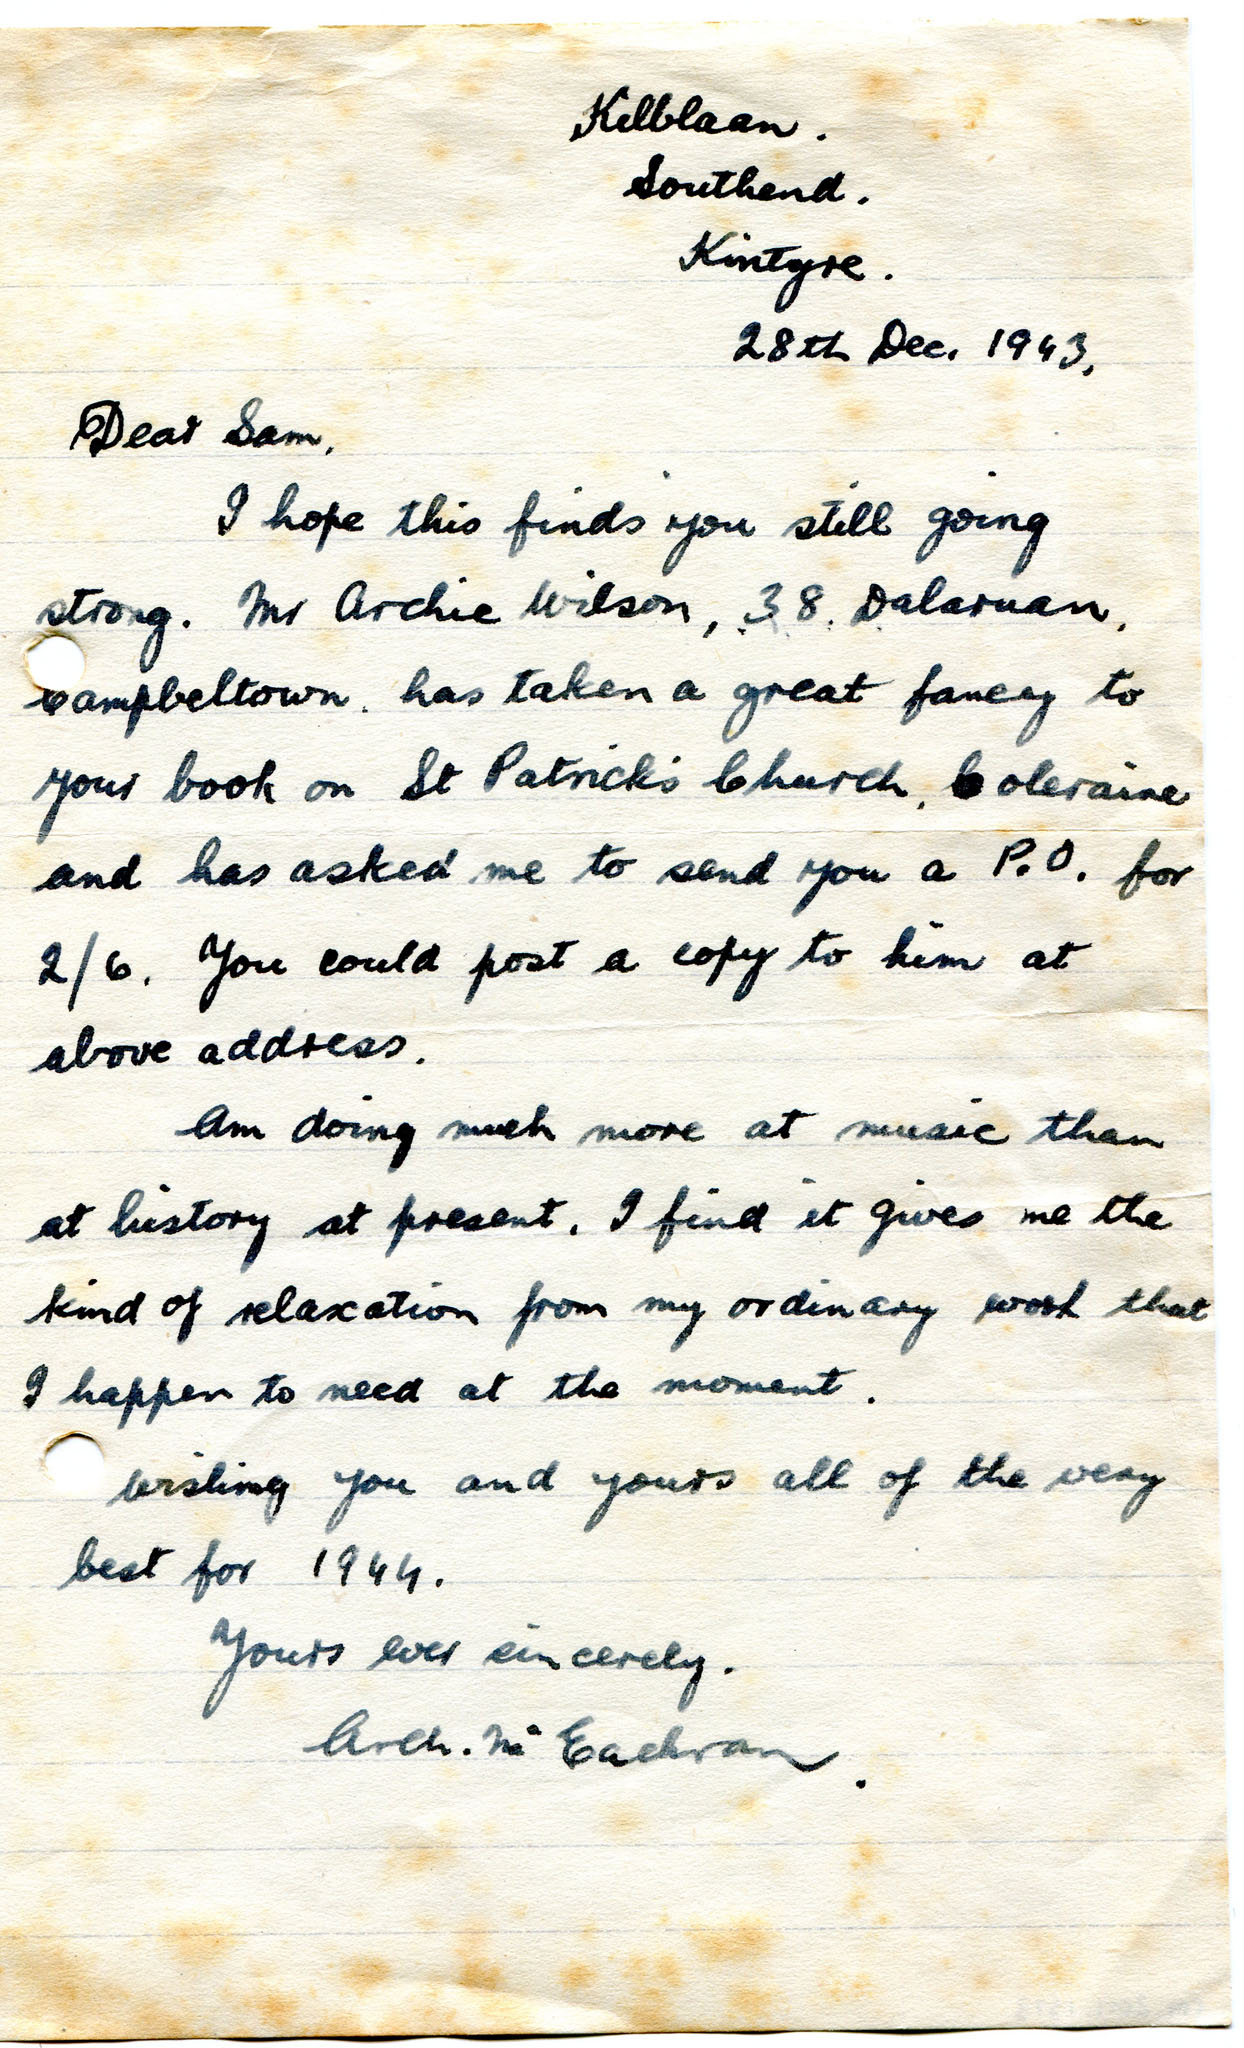 Kilblaan.
Southend.
Kintyre.
28th Dec. 1943,
Dear Sam,
I hope this finds you still going
strong. Mr Archie Wilson, 38. Dalaruan,
Campbeltown. has taken a great fancy to
your book on St Patrick's Church, Coleraine
and has asked me to send you a P.O. for
2/6. You could post a copy to him at
above address.
Am doing much more at music than
at history at present. I find it gives me the
kind of relaxation from my ordinary work that
I happen to need at the moment.
Wishing you and yours all of the very
best for 1944.
Yours ever sincerely.
Arch. Mc Eachran.